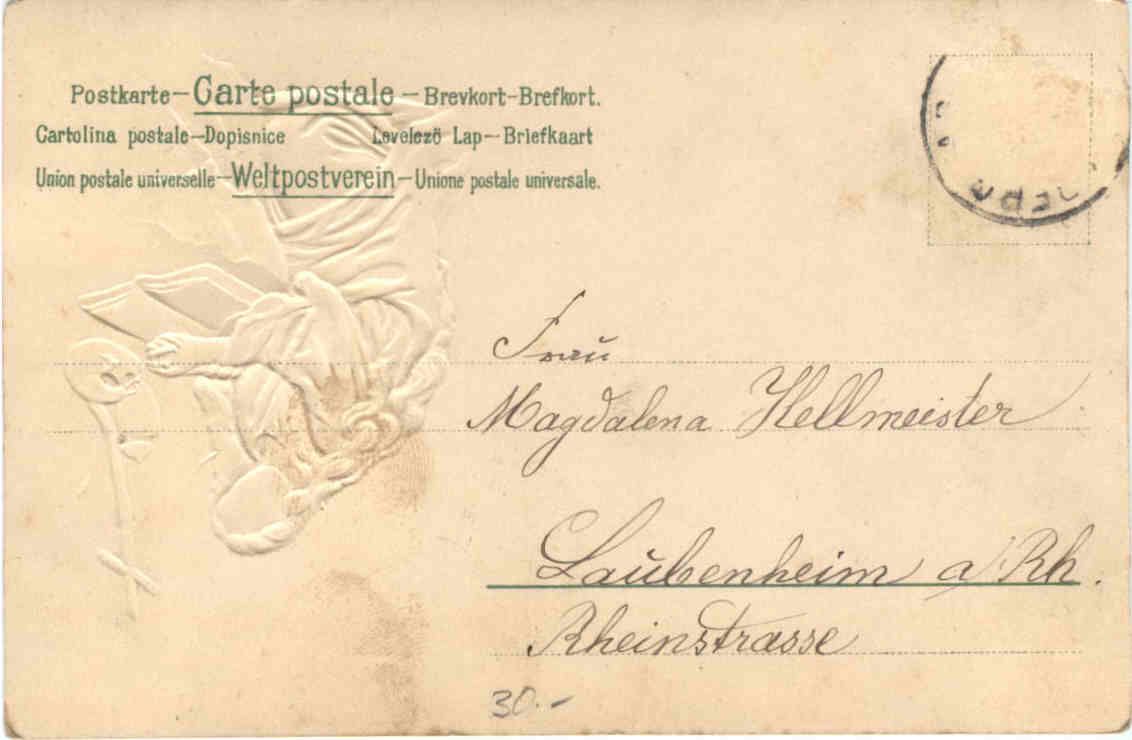 Postkarte–Carte postale–Brevkort–Brefkort.
Cartolina postale–Dopisnice Levelező Lap–Briefkaart
Union postale universelle–Weltpostverein–Unione postale universale.
Frau
Magdalena Hellmeister
Laubenheim a/Rh.
Rheinstrasse
30.-